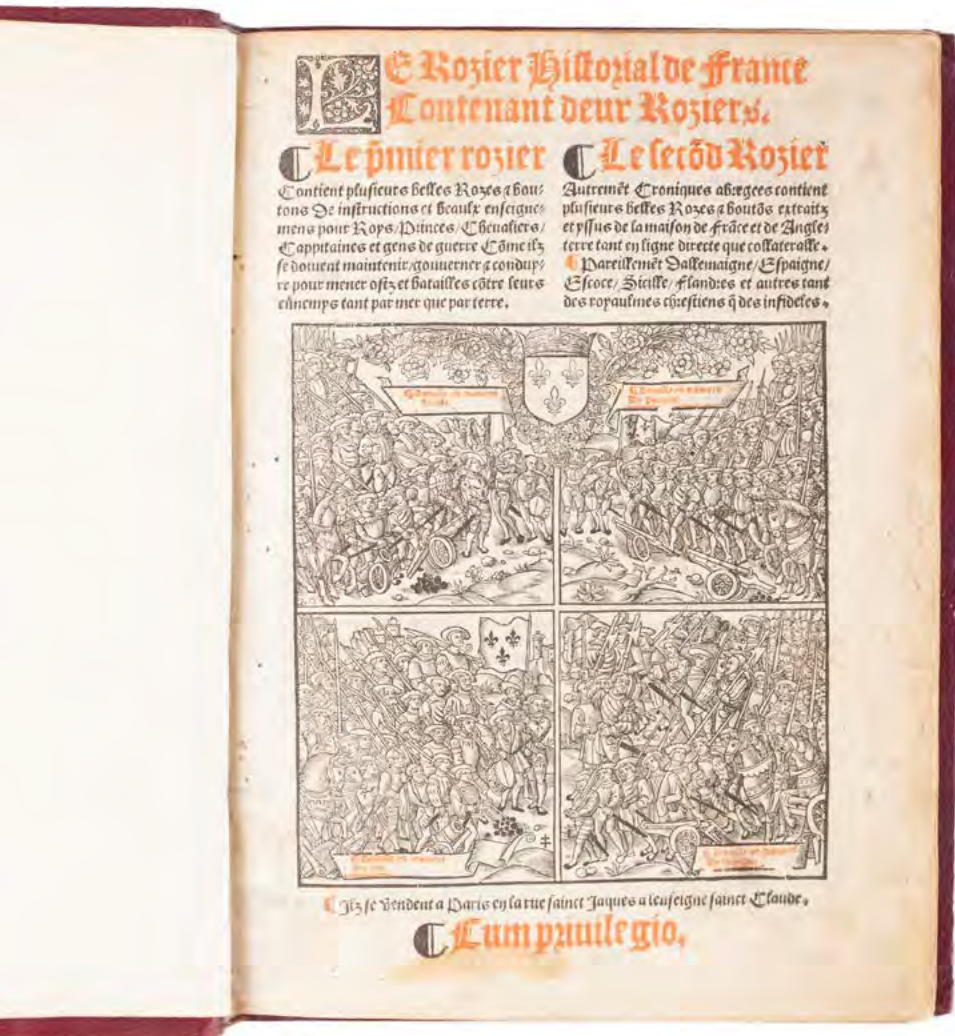 LE Rozier Historial de France
Contenant deux Roziers.
Le p̄mier rozier
Contient plusieurs belles Rozes ⁊ bou-
tons De instructions et beaulx enseigne-
mens pour Roys/Princes/Cheualiers/
Cappitaines et gens de guerre Cōme ilz
se doiuent maintenir/gouuerner ⁊ conduy-
re pour mener ostz et batailles cōtre leurs
ēnnemys tant par mer que par terre.
Le secōd Rozier
Autremēt Croniques abregees contient
plusieurs belles Rozes ⁊ boutōs extraitz
et yssus de la maison de frāce et de Angle-
terre tant en ligne directe que collateralle.
Pareillemēt Dallemaigne/Espaigne/
Escoce/Sicille/flandres et autres tant
des royaulmes chrestiens q̄ des infideles.
Ilz se vendent a Paris en la rue sainct Jaques a lenseigne sainct Claude.
Cum priuilegio.